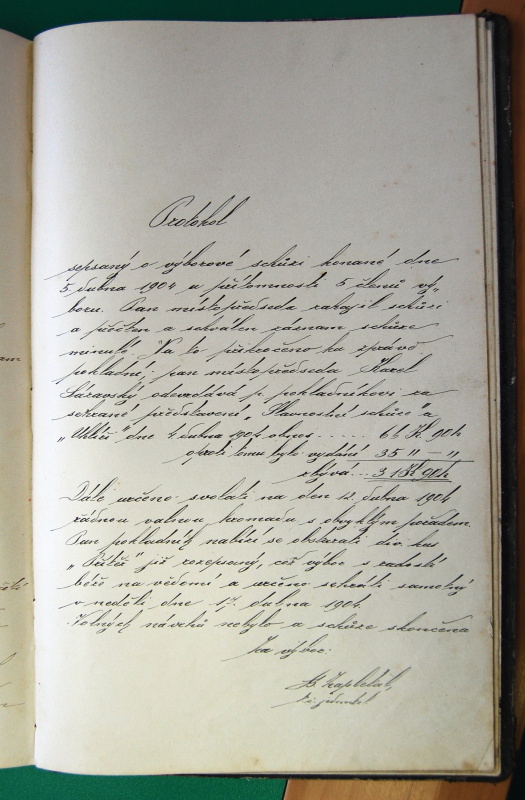 Protokol
sepsaný o výborové schůzi konané dne
5. dubna 1904 u přítomnosti 5 členů vý-
boru. Pan místopředseda zahájil schůzi
a přečten a schválen záznam schůze
minulé. Na to přikročeno ku zprávě
pokladní; pan místopředseda Karel
odevzdává p. pokladníkovi za
sehrané představení, "Slavnostní schůze" a
"Uhlíři" dne 4. dubna 1904 obnos ..... 66 K 90 h
oproti tomu bylo vydání 35 " — "
zbývá ... 31 K 90 h
Dále určeno svolati na den 12. dubna 1904
řádnou valnou hromadu s obvyklým pořadem.
Pan pokladník nabízí se obstarati div. kus
již rozepsaný, což výbor s radostí
béře na vědomí a určeno sehráti samotný
v neděli dne 17. dubna 1904.
Volných návrhů nebylo a schůze skončena
Za výbor:
B. Zapletal,
t. č. jednatel